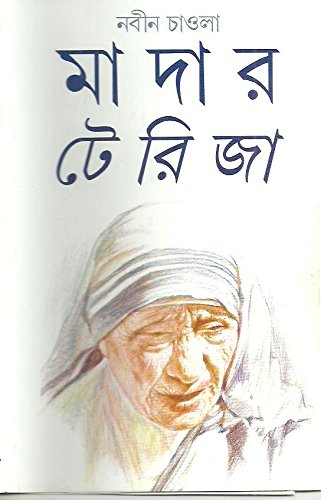 নবীন চাওলা
মাদার
টেরিজা